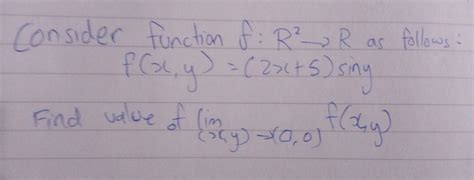 Consider function f: R² → R as follows:
f(x,y) = (2x+5)siny
Find value of lim f(x,y)
(x,y)→(0,0)